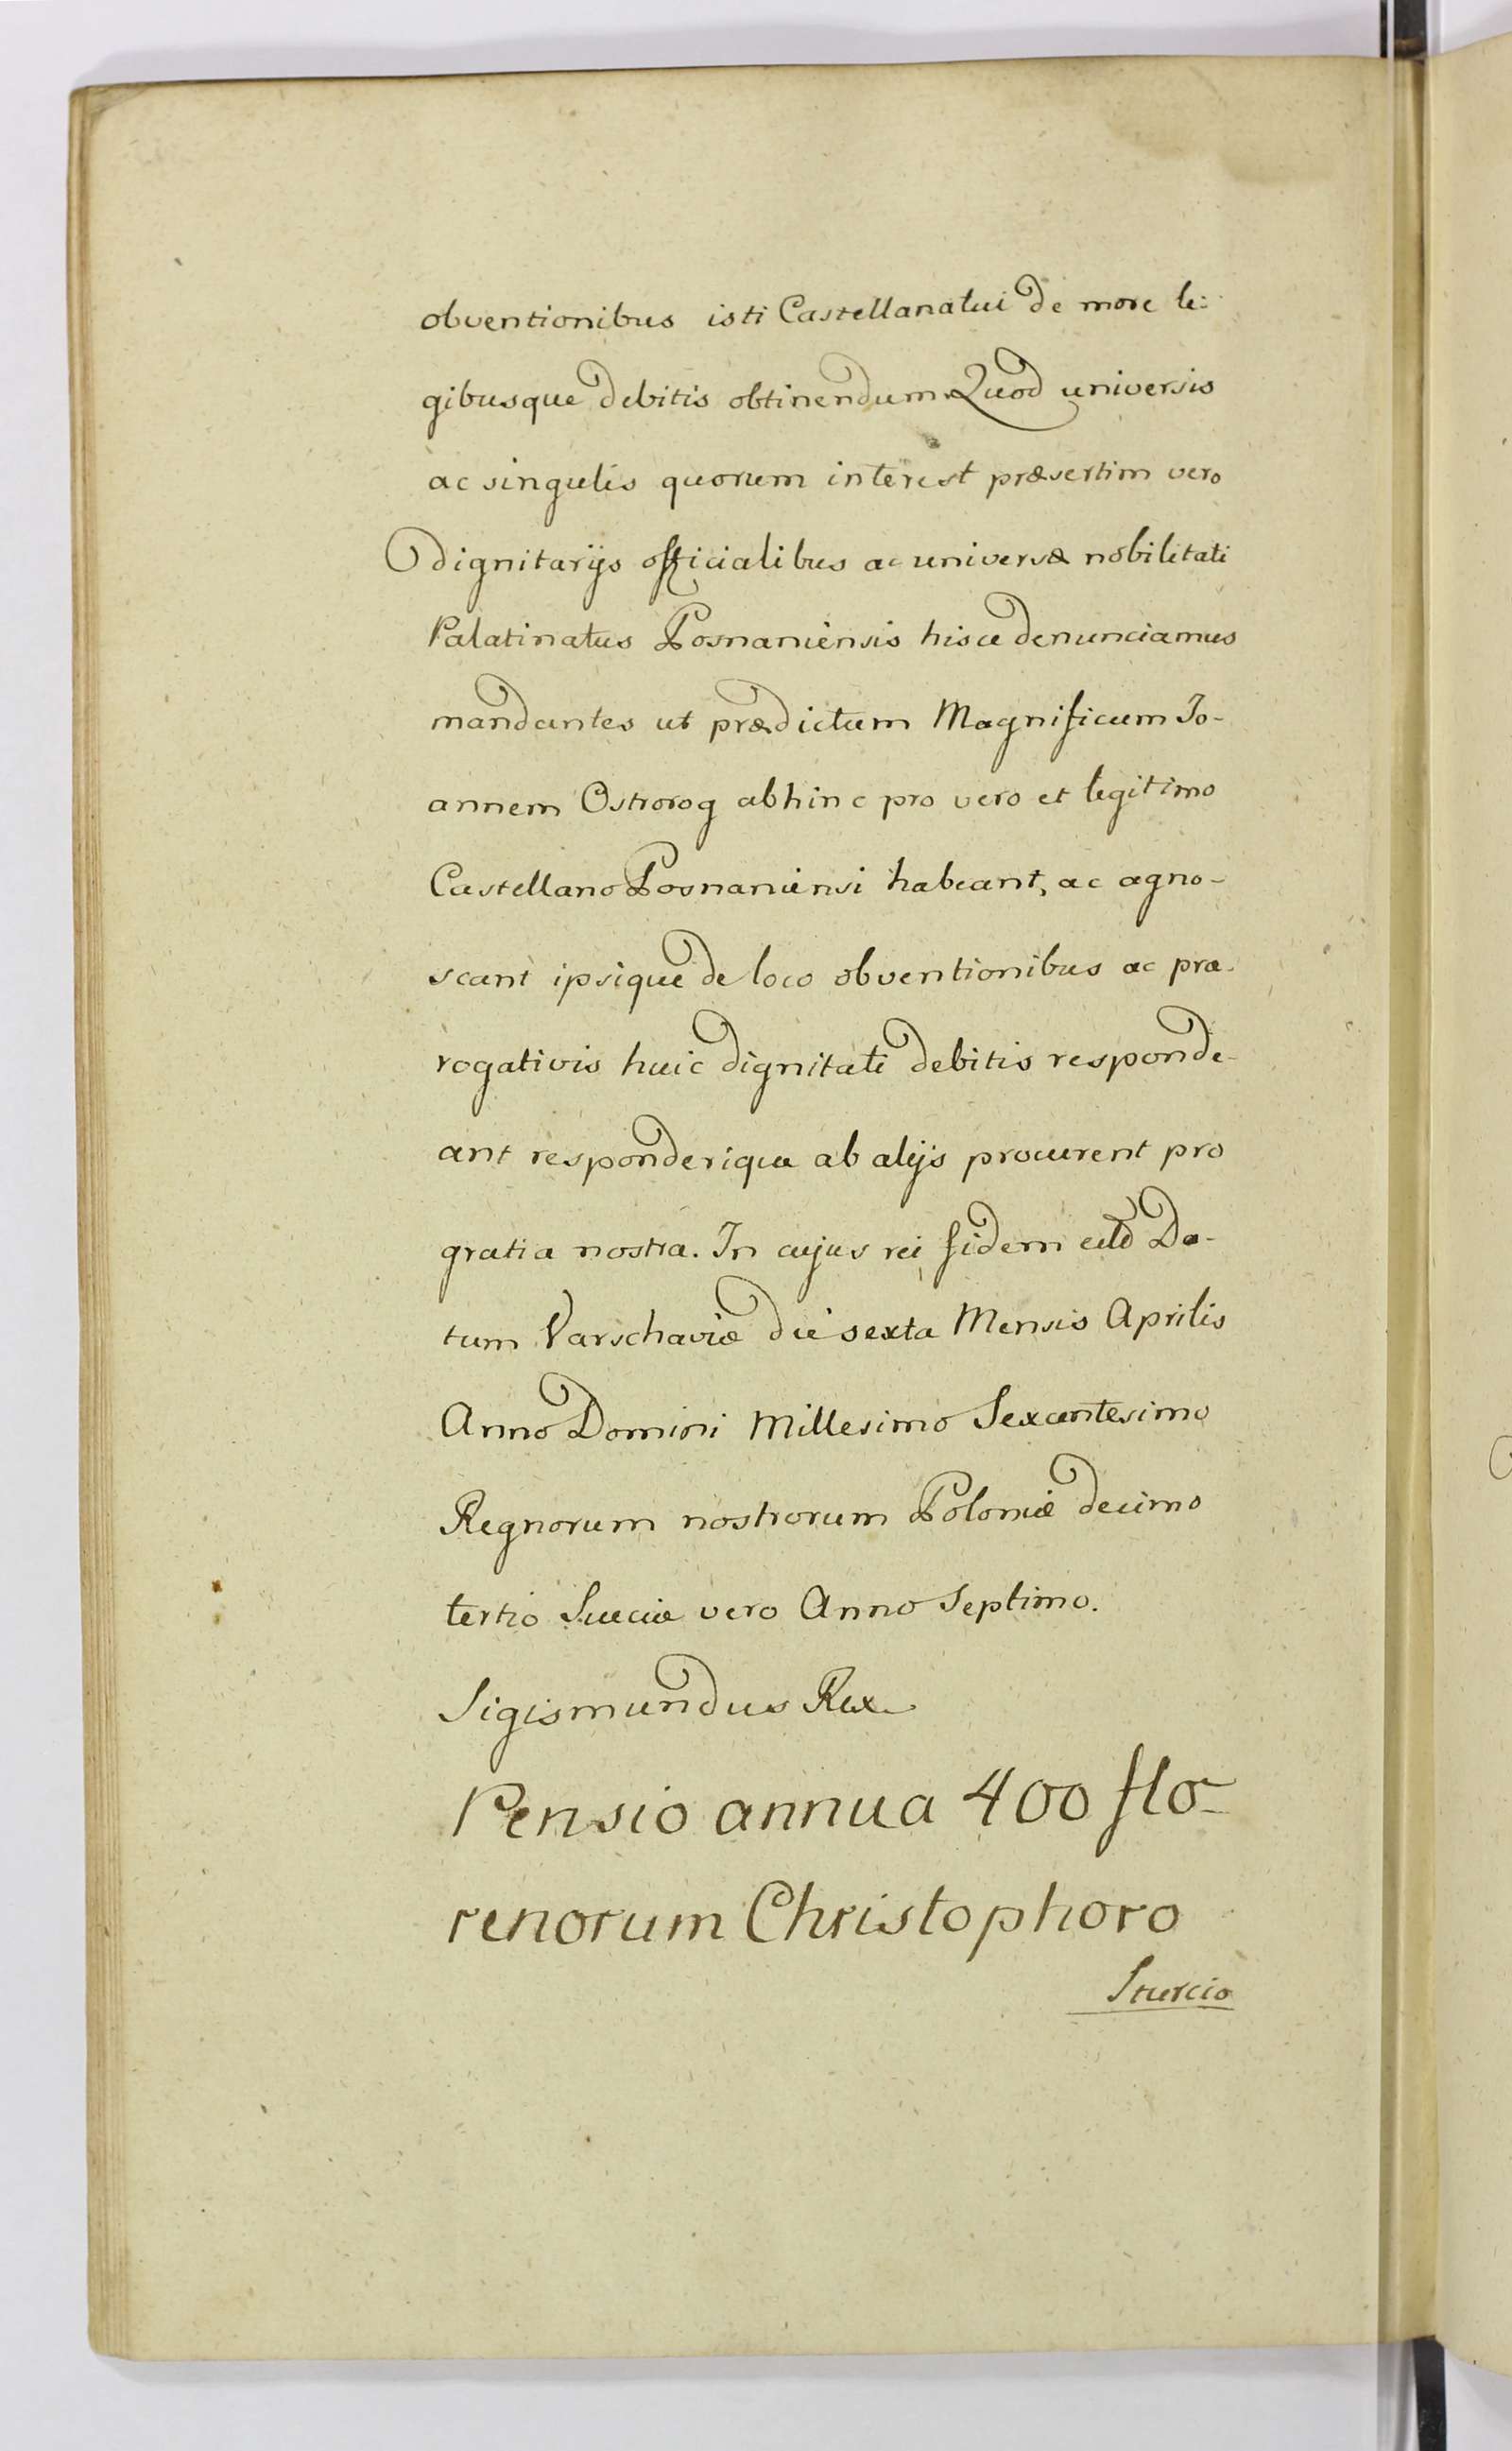 obventionibus isti Castellanatui de more le:
gibusque debitis obtinendum. Quod universis
ac singulis quorum interest præsertim vero
dignitarijs officialibus ac universæ nobilitati
Palatinatus Posnaniensis hisce denunciamus
mandantes ut prædictum Magnificum Jo-
annem Ostrorog abhinc pro vero et legitimo
Castellano Posnaniensi habeant, ac agno-
scant ipsique de loco obventionibus ac præ-
rogativis huic dignitati debitis responde-
ant responderique ab alijs procurent pro
gratia nostra. In cujus rei fidem Da-
tum Varschaviæ die sexta Mensis Aprilis
Anno Domini Millesimo Sexcentesimo
Regnorum nostrorum Poloniæ decimo
tertio Sueciæ vero Anno Septimo.
Sigismundus Rex
Pensio annua 400 flo-
renorum Christophoro
Sturcio